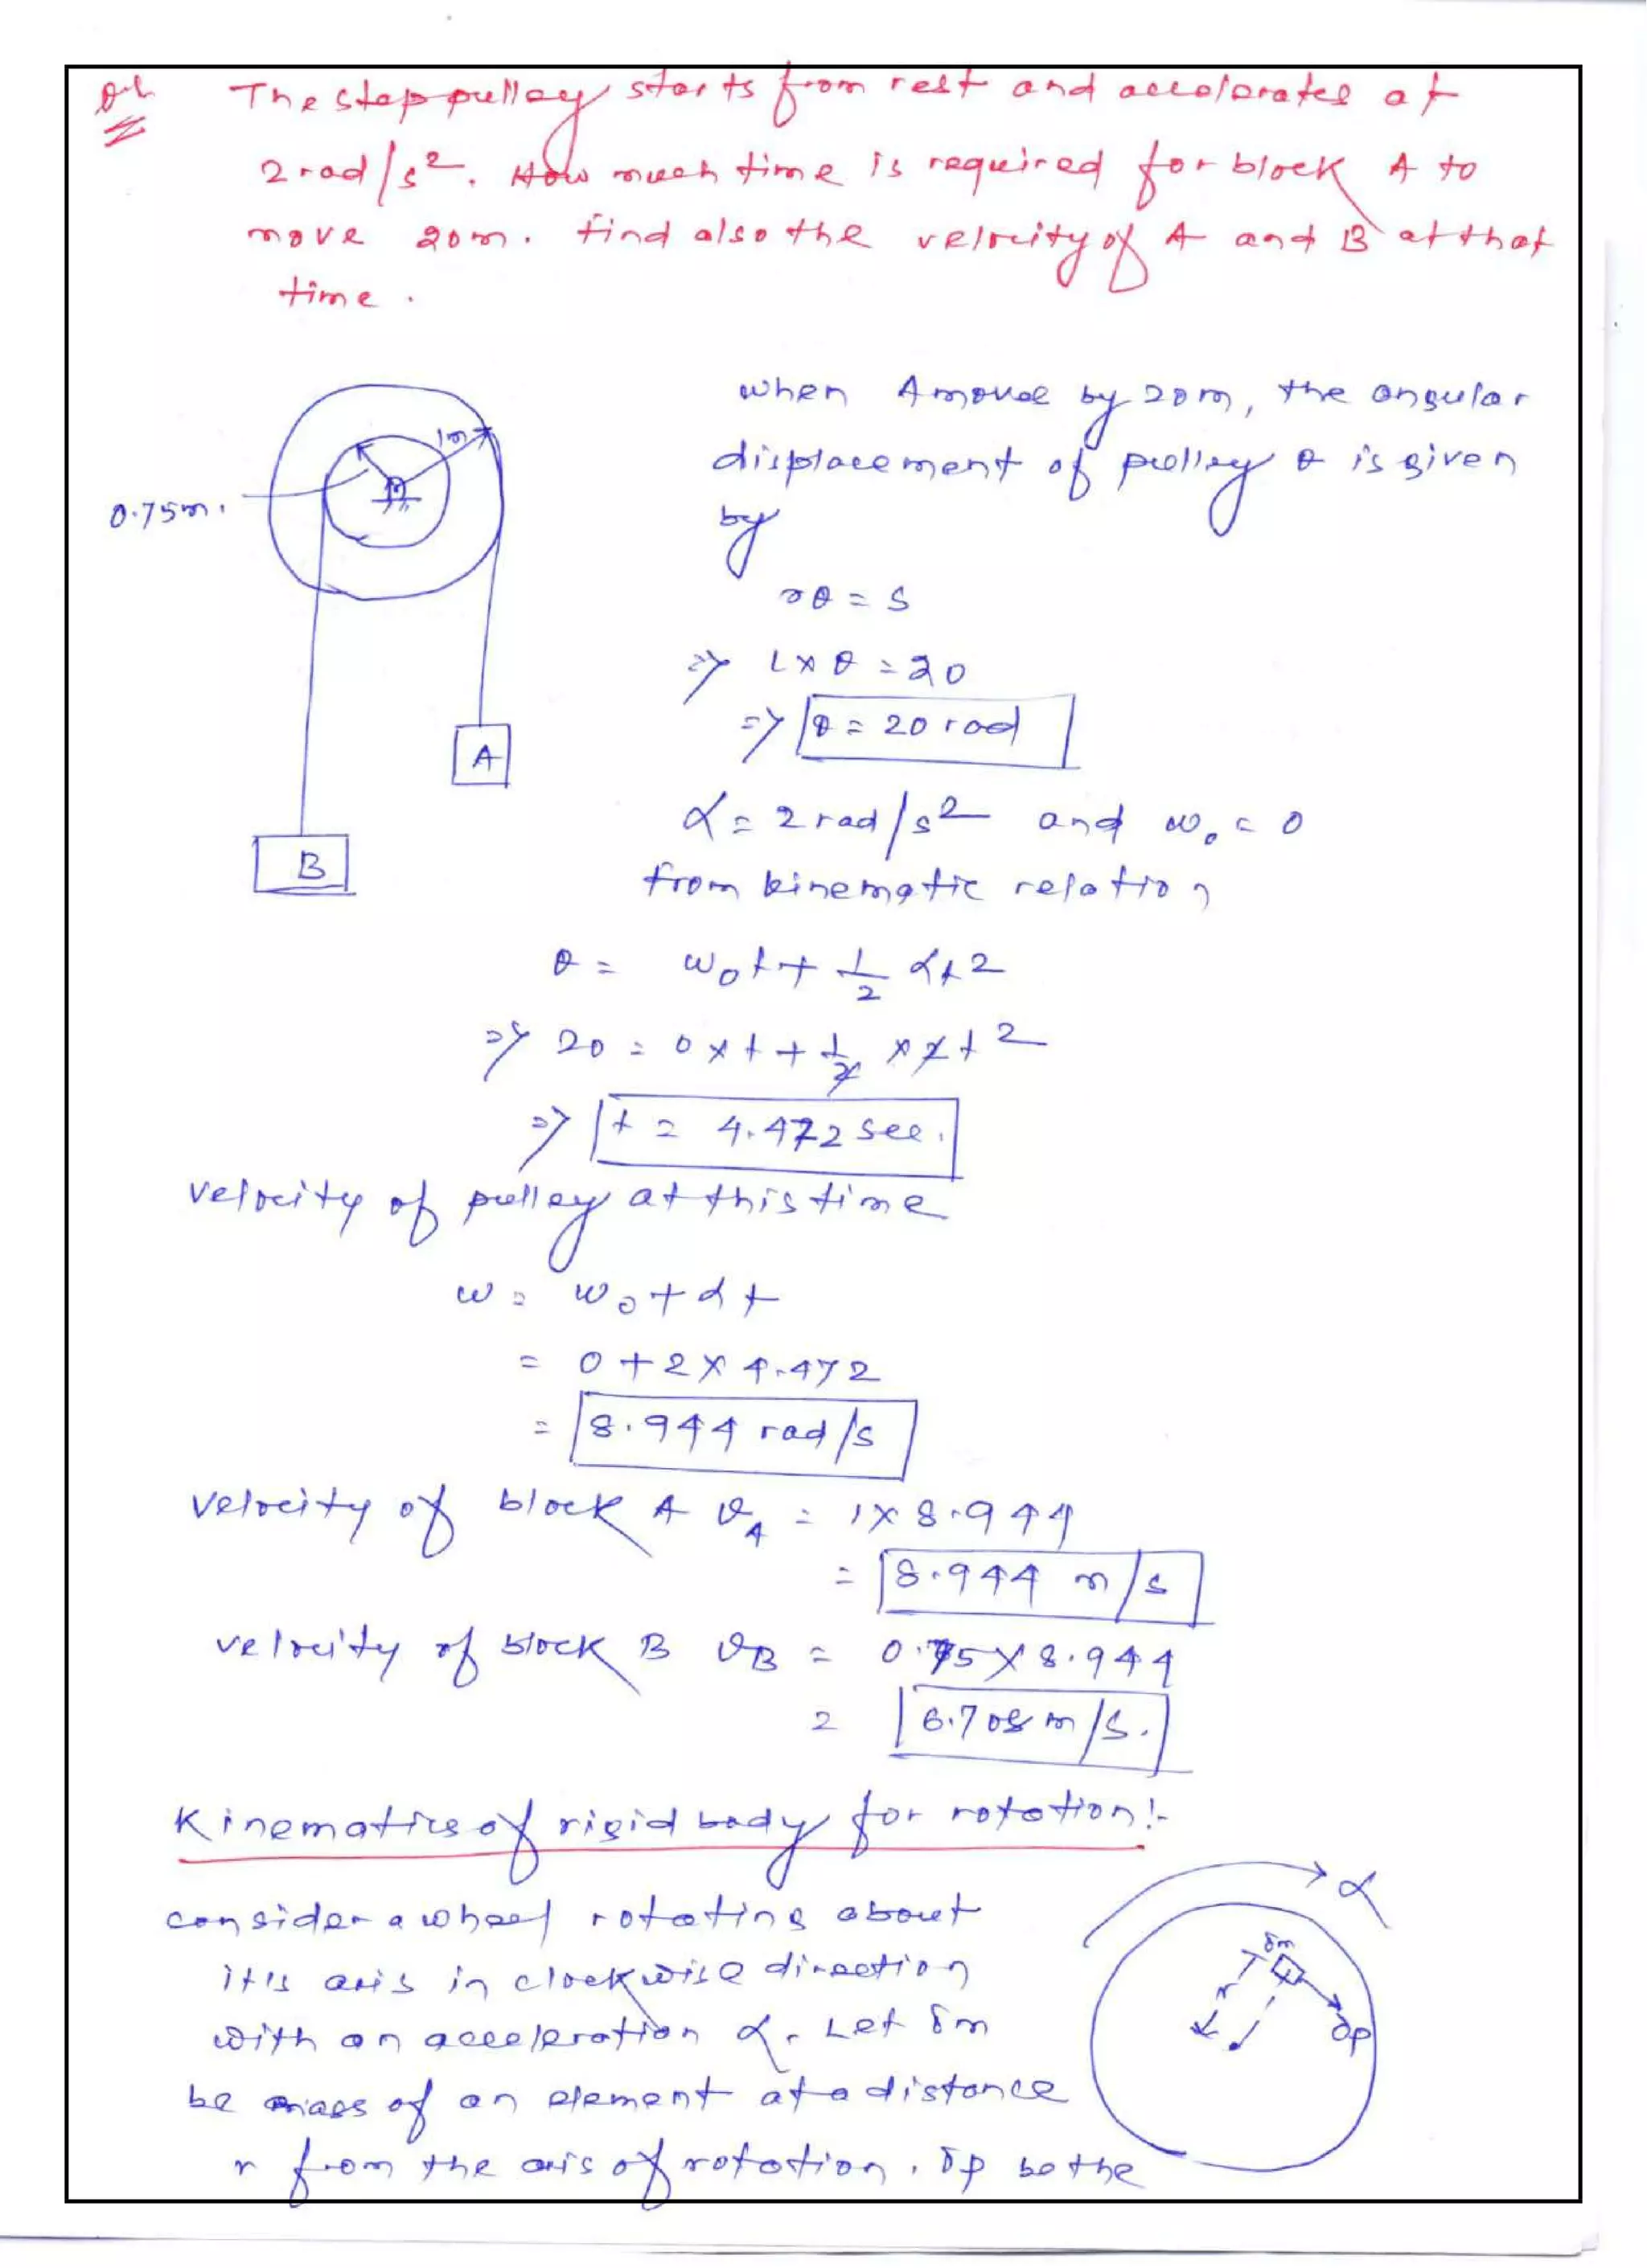 The step pulley starts from rest and accelerates at
2 rad/s². How much time is required for block A to
move 20m. find also the velocity of A and B at that
time.
when A moves by 20m, the angular
displacement of pulley θ is given
by
1m
0.75m.
rθ = S
⇒ 1 × θ = 20
⇒ θ = 20 rad
A
α = 2 rad/s² and ω₀ = 0
B
from kinematic relation
θ = ω₀t + 1/2 αt²
⇒ 20 = 0 × t + 1/2 × 2t²
⇒ t = 4.472 sec.
velocity of pulley at this time
ω = ω₀ + αt
= 0 + 2 × 4.472
= 8.944 rad/s
velocity of block A v_A = 1 × 8.944
= 8.944 m/s
velocity of block B v_B = 0.75 × 8.944
= 6.708 m/s.
Kinematics of rigid body for rotation:-
α
consider a wheel rotating about
it's axis in clockwise direction
δm
r
with an acceleration α. Let δm
δp
be mass of an element at a distance
r from the axis of rotation. δp be the